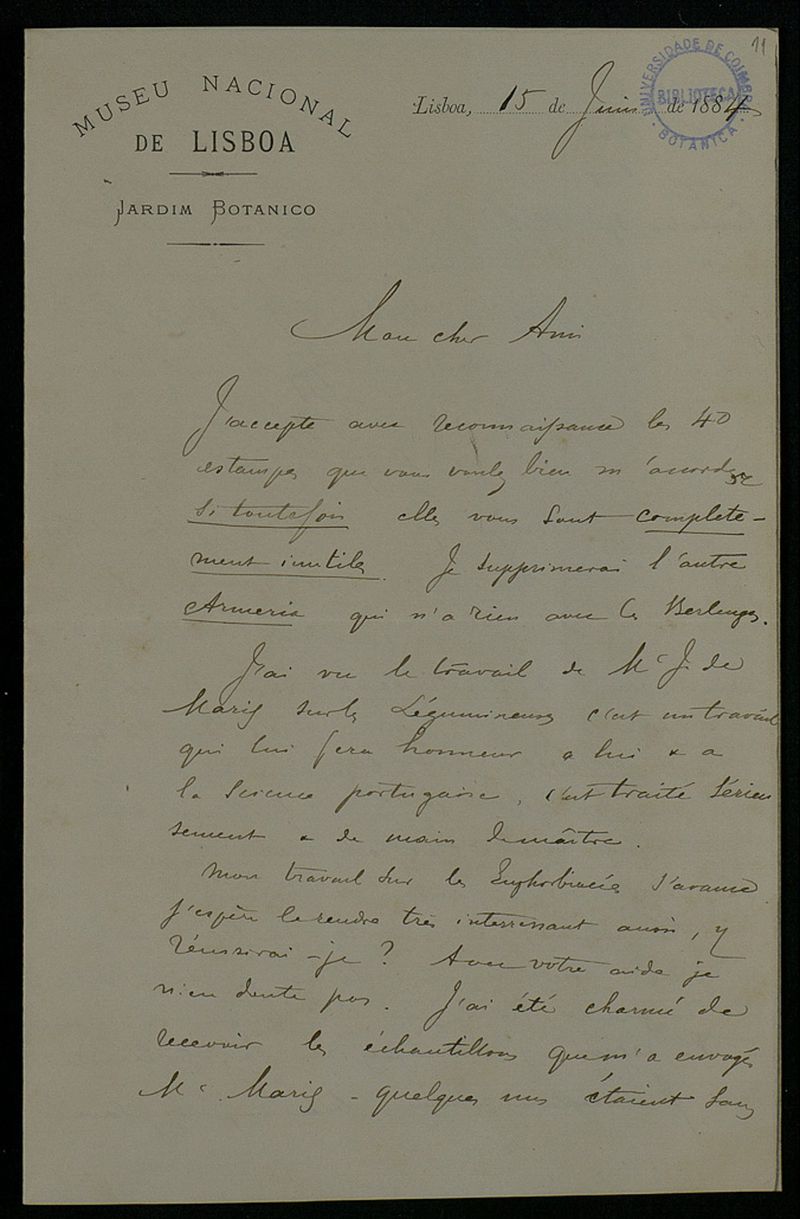 11
MUSEU NACIONAL
DE LISBOA
JARDIM BOTANICO
Lisboa, 15 de Juin de 1884
UNIVERSIDADE DE COIMBRA
BIBLIOTECA
BOTANICA
Mon cher Ami
J'accepte avec reconnaissance les 40
estampes que vous voulez bien m'accorder
si toutefois elles vous sont complete-
ment inutiles. Je supprimerai l'autre
Armeria qui n'a rien avec les Berlengas.
J'ai vu le travail de Mr J. de
Mariz sur les Légumineuses c'est un travail
qui lui fera honneur a lui & a
la Science portugaise, c'est traité sérieu
sement & de main de maître.
Mon travail sur les Euphorbiacées s'avance
j'espère le rendre très interressant aussi, y
réussirai-je? Avec votre aide je
n'en doute pas. J'ai été charmé de
recevoir les échantillons que m'a envoyés
Mr Mariz - quelques uns étaient sans